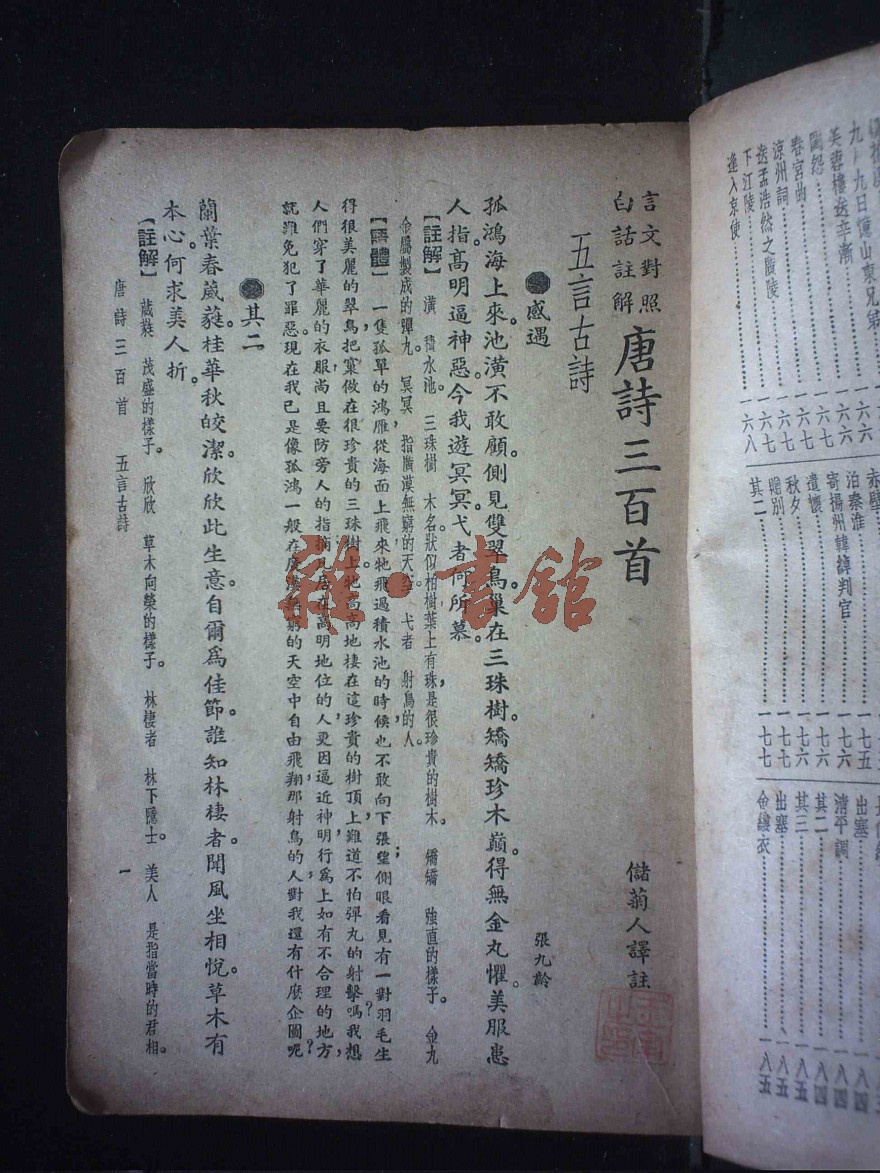 言文對照
白話註解
唐詩三百首
儲菊人譯註
五言古詩
感遇
張九齡
孤鴻海上來。池潢不敢顧。側見雙翠鳥。巢在三珠樹。矯矯珍木巔。得無金丸懼。美服患
人指。高明逼神惡。今我遊冥冥。弋者何所慕。
【註解】 潢 積水池。 三珠樹 木名，狀似柏樹，葉上有珠，是很珍貴的樹木。 矯矯 強直的樣子。 金丸
金屬製成的彈丸。 冥冥，指廣漠無窮的天空。 弋者 射鳥的人。
【語體】 一隻孤單的鴻雁，從海面上飛來，牠飛過積水池的時候，也不敢向下張望；側眼看見有一對羽毛生
得很美麗的翠鳥，把窠做在很珍貴的三珠樹上，牠高高地棲在這珍貴的樹頂上，難道不怕彈丸的射擊嗎？我想，
人們穿了華麗的衣服，尚且要防旁人的指摘，凡居在高明地位的人，更因逼近神明，行爲上如有不合理的地方，
就難免犯了罪惡。現在我已是像孤鴻一般，在廣漠無窮的天空中自由飛翔，那射鳥的人，對我還有什麼企圖呢？
其二
蘭葉春葳蕤。桂華秋皎潔。欣欣此生意。自爾爲佳節。誰知林棲者。聞風坐相悅。草木有
本心。何求美人折。
【註解】 葳蕤 茂盛的樣子。 欣欣 草木向榮的樣子。 林棲者 林下隱士。 美人 是指當時的君相。
唐詩三百首 五言古詩 一
雜·書館
九月九日憶山東兄弟
一六六
芙蓉樓送辛漸
一六六
閨怨
一六六
春宮曲
一六七
涼州詞
一六七
送孟浩然之廣陵
一六七
下江陵
一六七
逢入京使
一六八
赤壁
泊秦淮
一七五
寄揚州韓綽判官
一七六
遣懷
一七六
秋夕
一七六
贈別
一七七
其二
一七七
出塞
一八四
清平調
一八四
其二
一八四
其三
一八五
出塞
一八五
金縷衣
一八五